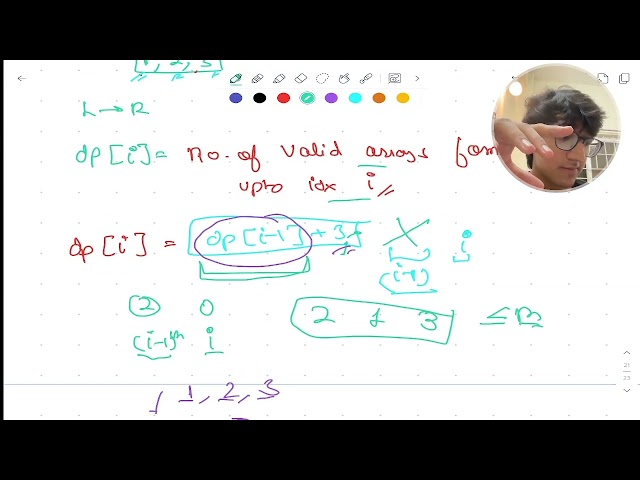 1, 2, 3
L → R
dp[i] = No. of valid arrays
upto idx i
dp[i] = dp[i-1] + 3 X i
(i-1)
2 0 2 1 3 ≤ m
(i-1)th i
1, 2, 3
21
23